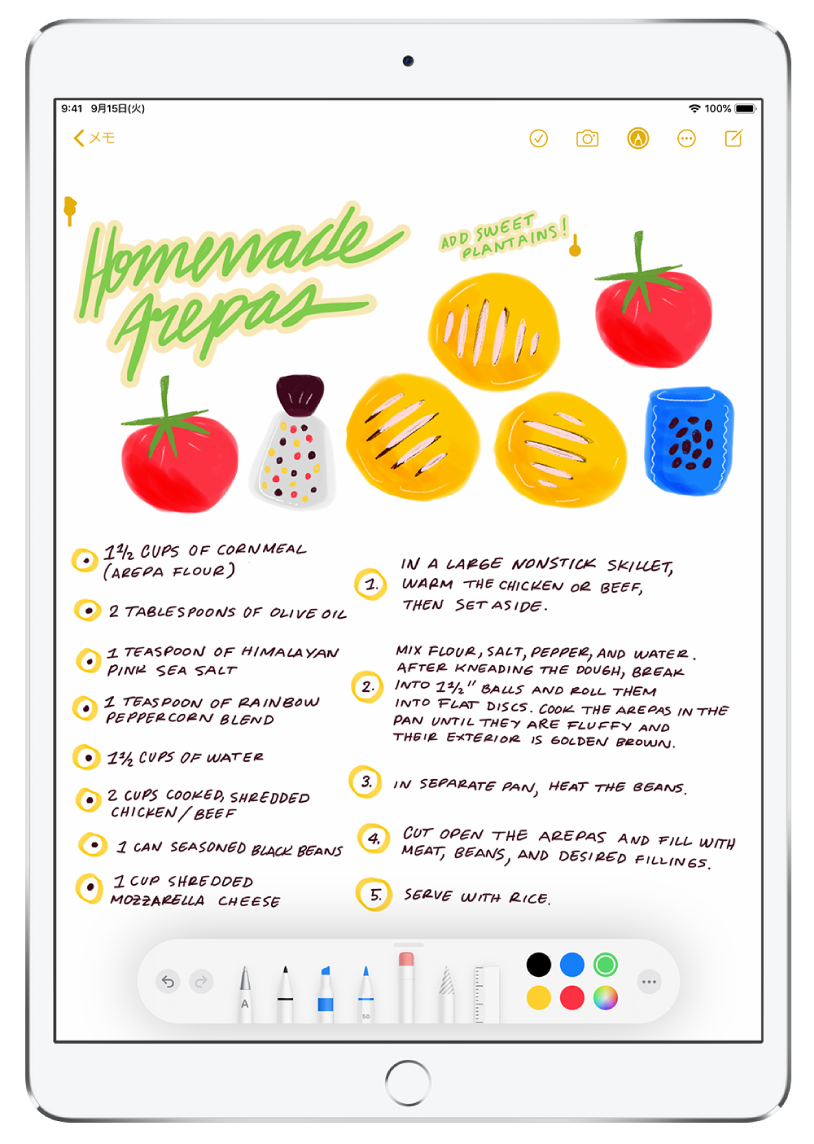 9:41 9月15日(火)
100%
メモ
Homemade
Arepas
ADD SWEET
PLANTAINS!
1 1/2 CUPS OF CORNMEAL
(AREPA FLOUR)
2 TABLESPOONS OF OLIVE OIL
1 TEASPOON OF HIMALAYAN
PINK SEA SALT
1 TEASPOON OF RAINBOW
PEPPERCORN BLEND
1 1/2 CUPS OF WATER
2 CUPS COOKED, SHREDDED
CHICKEN/BEEF
1 CAN SEASONED BLACK BEANS
1 CUP SHREDDED
MOZZARELLA CHEESE
1. IN A LARGE NONSTICK SKILLET,
WARM THE CHICKEN OR BEEF,
THEN SET ASIDE.
2. MIX FLOUR, SALT, PEPPER, AND WATER.
AFTER KNEADING THE DOUGH, BREAK
INTO 1 1/2" BALLS AND ROLL THEM
INTO FLAT DISCS. COOK THE AREPAS IN THE
PAN UNTIL THEY ARE FLUFFY AND
THEIR EXTERIOR IS GOLDEN BROWN.
3. IN SEPARATE PAN, HEAT THE BEANS.
4. CUT OPEN THE AREPAS AND FILL WITH
MEAT, BEANS, AND DESIRED FILLINGS.
5. SERVE WITH RICE.
A
50